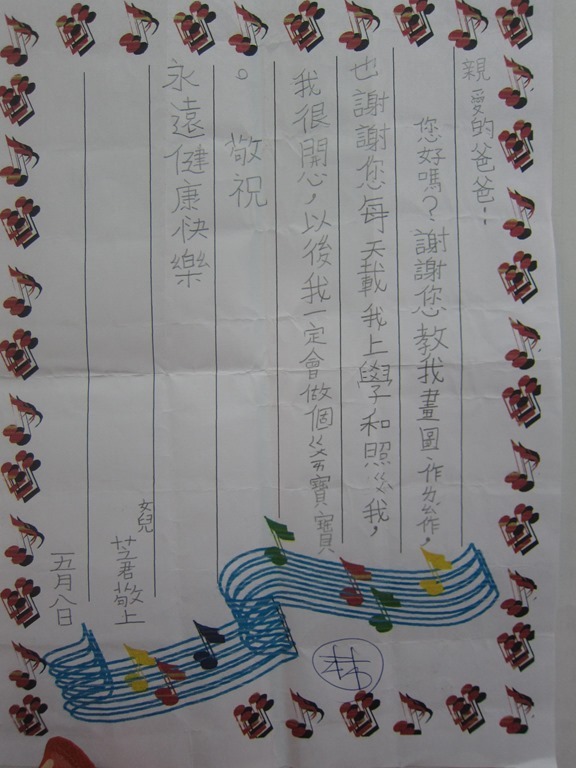 親愛的爸爸：
您好嗎？謝謝您教我畫圖作勞作，
也謝謝您每天載我上學和照ㄍㄨ我，
我很開心，以後我一定會做個ㄍㄨㄞ寶寶
。敬祝
永遠健康快樂
女兒
芝君敬上
五月八日
林